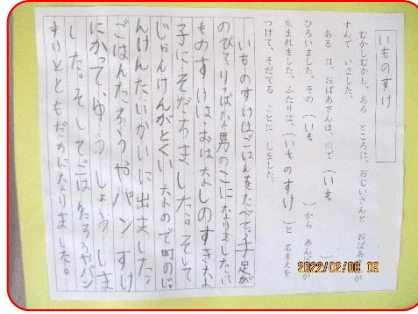 いものすけ
むかしむかし、ある ところに、おじいさんと おばあさんが
すんで いました。
ある 日、おばあさんは、川で（いも
ひろいました。その（いも ）から あか
生まれました。ふたりは、（いものすけ ）と 名まえを
つけて、そだてる ことに しました。
いものすけはごはんをたべて、手足が
のびてりっぱな男のこになりました。い
ものすけはおはなしのすきな
子にそだちました。そして
じゃんけんがとくいなので町のじ
ゃんけんたいかいに出ました。
ごはんたろうやパンすけ
にかって、ゆうしょうしま
した。そしてごはんたろうやパン
すけともだちになりました。
2022/02/08